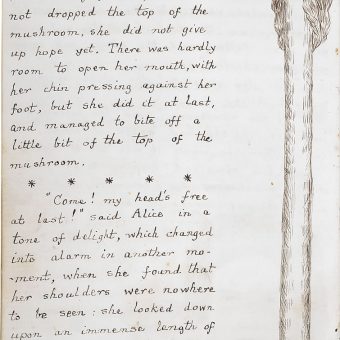 not dropped the top of the
mushroom, she did not give
up hope yet. There was hardly
room to open her mouth, with
her chin pressing against her
foot, but she did it at last,
and managed to bite off a
little bit of the top of the
mushroom.
* * * * *
"Come! my head's free
at last!" said Alice in a
tone of delight, which changed
into alarm in another mo-
-ment, when she found that
her shoulders were nowhere
to be seen: she looked down
upon an immense length of